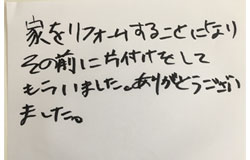 家をリフォームすることになり
その前に片付けをして
もらいました。ありがとうござい
ました。